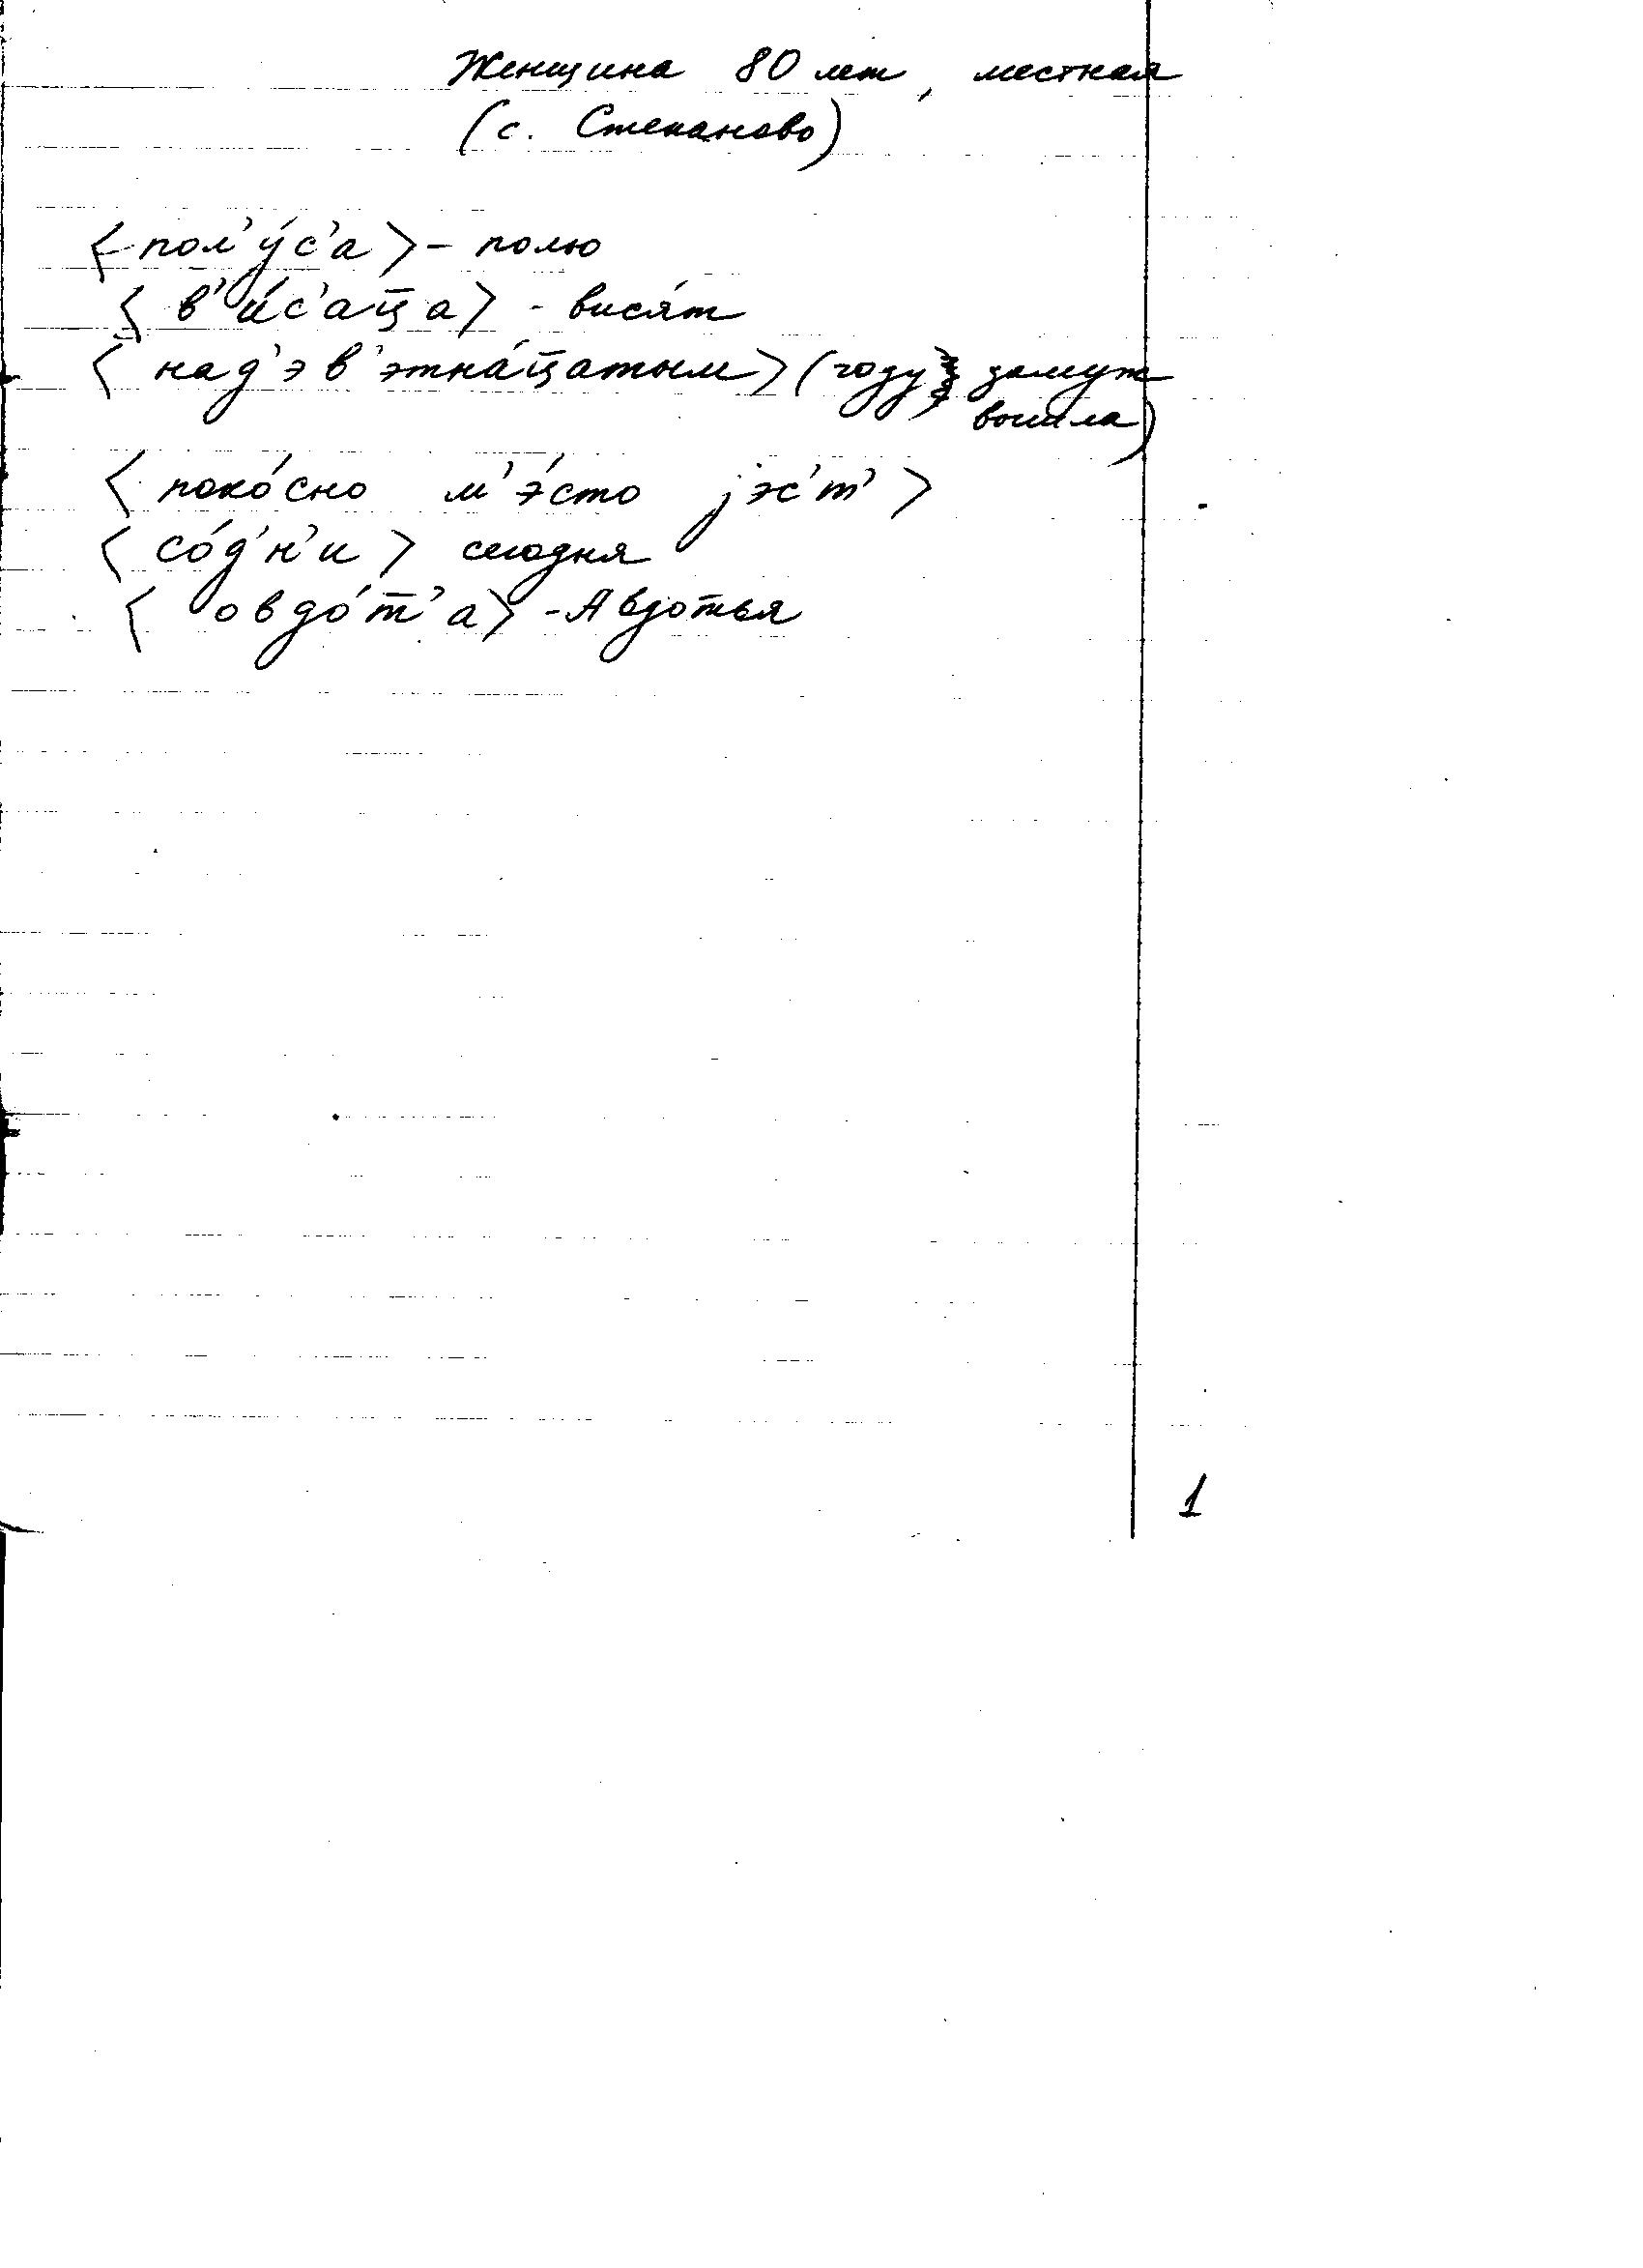 Женщина 80 лет, местная
(с. Степаново)
<пол'у́с'а> – полю
<в'и́с'ац̄а> - вися́т
<над'эв'этна́ц̄атым> (году замуж
вошла)
<поко́сно м'э́сто jэс'т'>
<со́д'н'и> сегодня
<овдо́т̄'а> - Авдотья
1